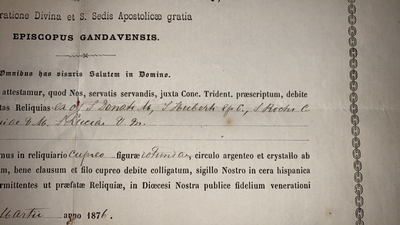 ratione Divina et S. Sedis Apostolicæ gratia
EPISCOPUS GANDAVENSIS.
Omnibus has visuris Salutem in Domino.
attestamur, quod Nos, servatis servandis, juxta Conc. Trident. præscriptum, debite
tas Reliquias Ex oss. S Donati M, S Huberti Ep C, S Rochi C
V M S Luciæ V. M.
mus in reliquiario cupreo figuræ rotundæ, circulo argenteo et crystallo ab
m, bene clausum et filo cupreo debite colligatum, sigillo Nostro in cera hispanica
ermittentes ut præfatæ Reliquiæ, in Diœcesi Nostra publice fidelium venerationi
Martii anno 1876.